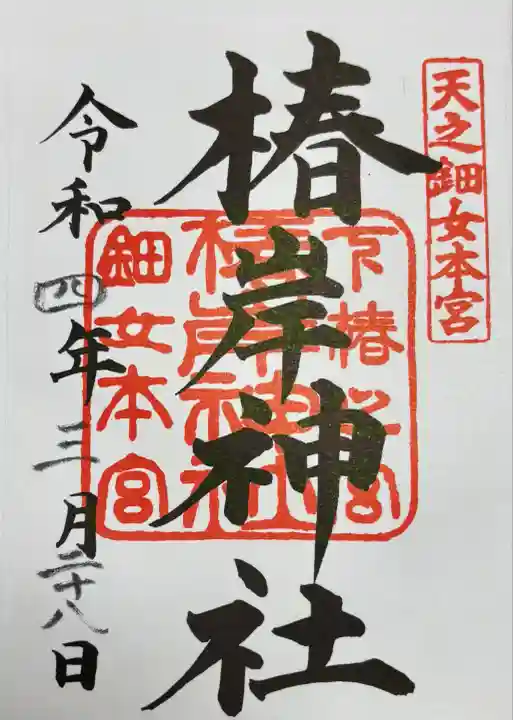 天之鈿女本宮
椿岸神社
下椿 宮
椿岸神社
鈿女本宮
令和四年三月二十八日